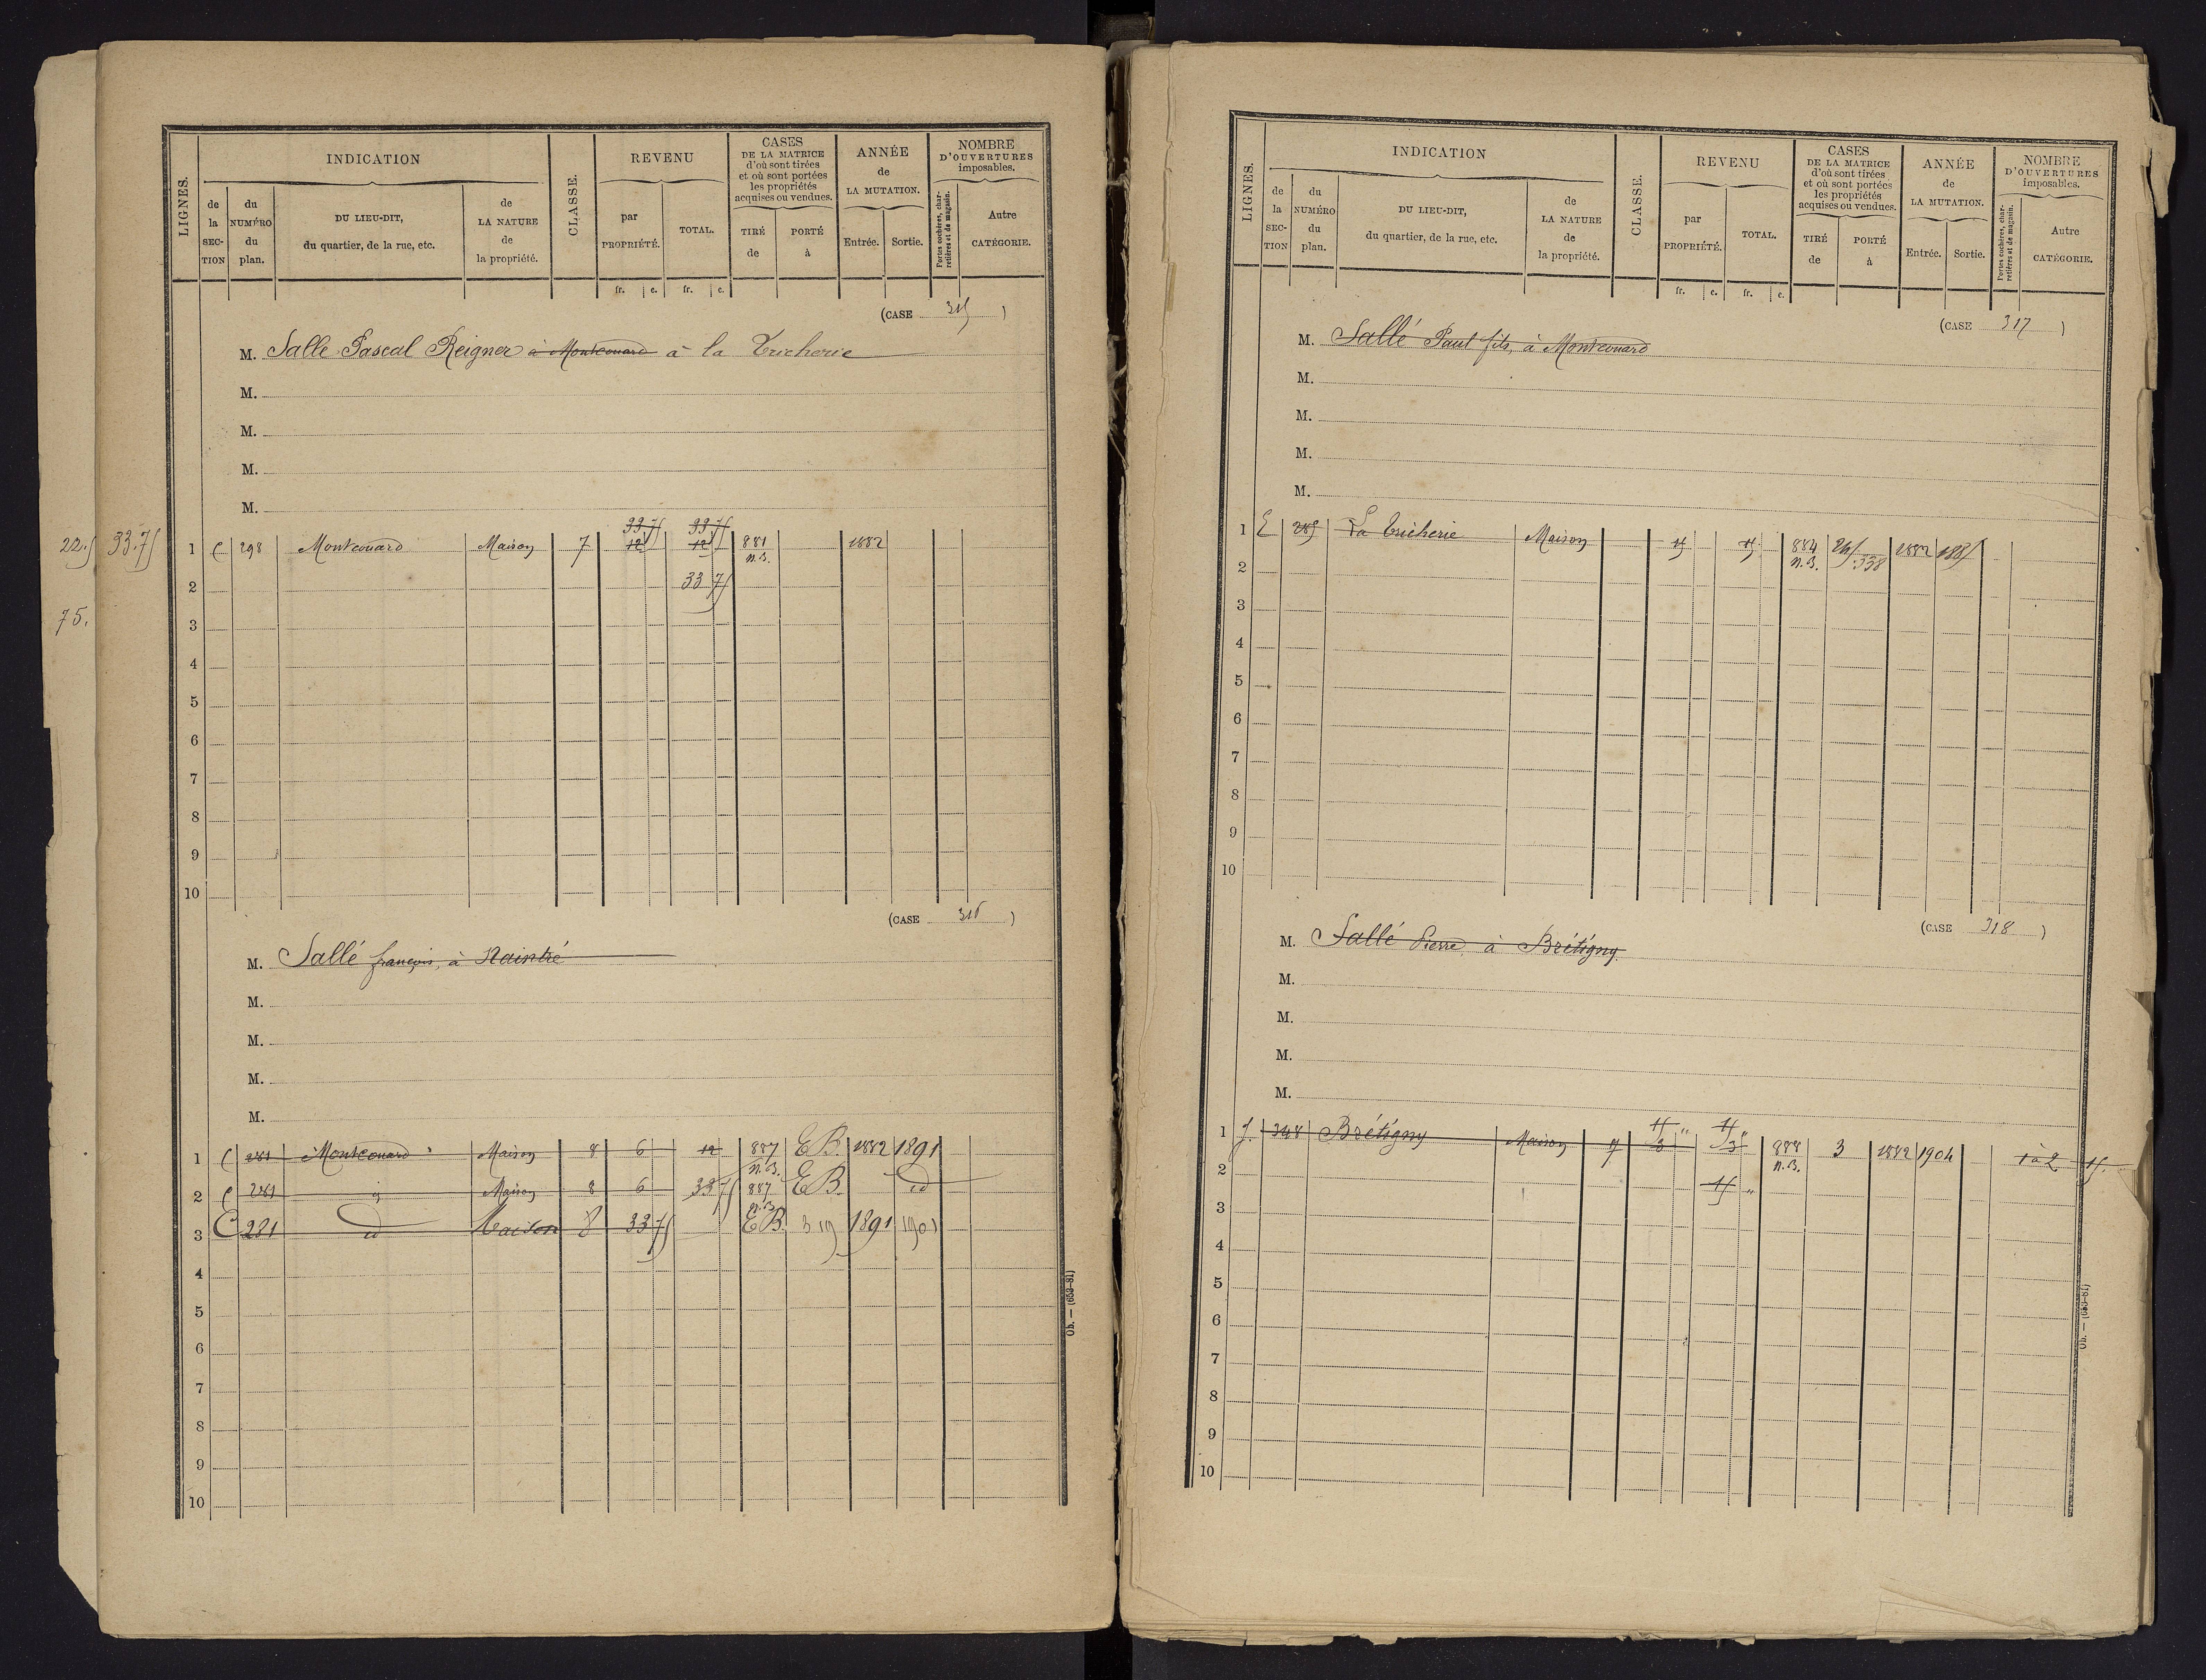 LIGNES.
INDICATION
de la SECTION
du NUMÉRO du plan.
DU LIEU-DIT, du quartier, de la rue, etc.
de LA NATURE de la propriété.
CLASSE.
REVENU
par PROPRIÉTÉ.
TOTAL.
CASES DE LA MATRICE d'où sont tirées et où sont portées les propriétés acquises ou vendues.
TIRÉ de
PORTÉ à
ANNÉE de LA MUTATION.
Entrée.
Sortie.
NOMBRE D'OUVERTURES imposables.
Portes cochères, charretières et de magasin.
Autre CATÉGORIE.
fr. c. fr. c.
(CASE 315)
M. Salle Pascal Reigner à Montcouard à la Tricherie
M.
M.
M.
M.
33.75 33.75
22.5 33.75 1 C 298 Montcouard Maison 7 12 12 881 n.B. 1882
2 33 75
75.
3
4
5
6
7
8
9
10
(CASE 316)
M. Sallé françois, à Naintré
M.
M.
M.
M.
1 C 281 Montcouard Maison 8 6 12 887 n.B. EB. 1882 1891
2 C 281 Maison 8 6 33 75 887 n.B. EB. id
3 C 281 id Maison 8 33 75 EB. 319 1891 1901
4
5
6
7
8
9
10
Ob. — (653-81)
LIGNES.
INDICATION
de la SECTION
du NUMÉRO du plan.
DU LIEU-DIT, du quartier, de la rue, etc.
de LA NATURE de la propriété.
CLASSE.
REVENU
par PROPRIÉTÉ.
TOTAL.
CASES DE LA MATRICE d'où sont tirées et où sont portées les propriétés acquises ou vendues.
TIRÉ de
PORTÉ à
ANNÉE de LA MUTATION.
Entrée.
Sortie.
NOMBRE D'OUVERTURES imposables.
Portes cochères, charretières et de magasin.
Autre CATÉGORIE.
fr. c. fr. c.
(CASE 317)
M. Sallé Paul fils, à Montcouard
M.
M.
M.
M.
1 E 285 La Tricherie Maison 15 15 884 n.B. 338 1882 1885
2
3
4
5
6
7
8
9
10
(CASE 318)
M. Sallé Pierre, à Brétigny.
M.
M.
M.
M.
15 " 15 "
1 J. 348 Brétigny Maison 7 3 3 888 n.B. 3 1882 1904 1 à 2 15.
2 15 "
3
4
5
6
7
8
9
10
Ob. — (653-81)